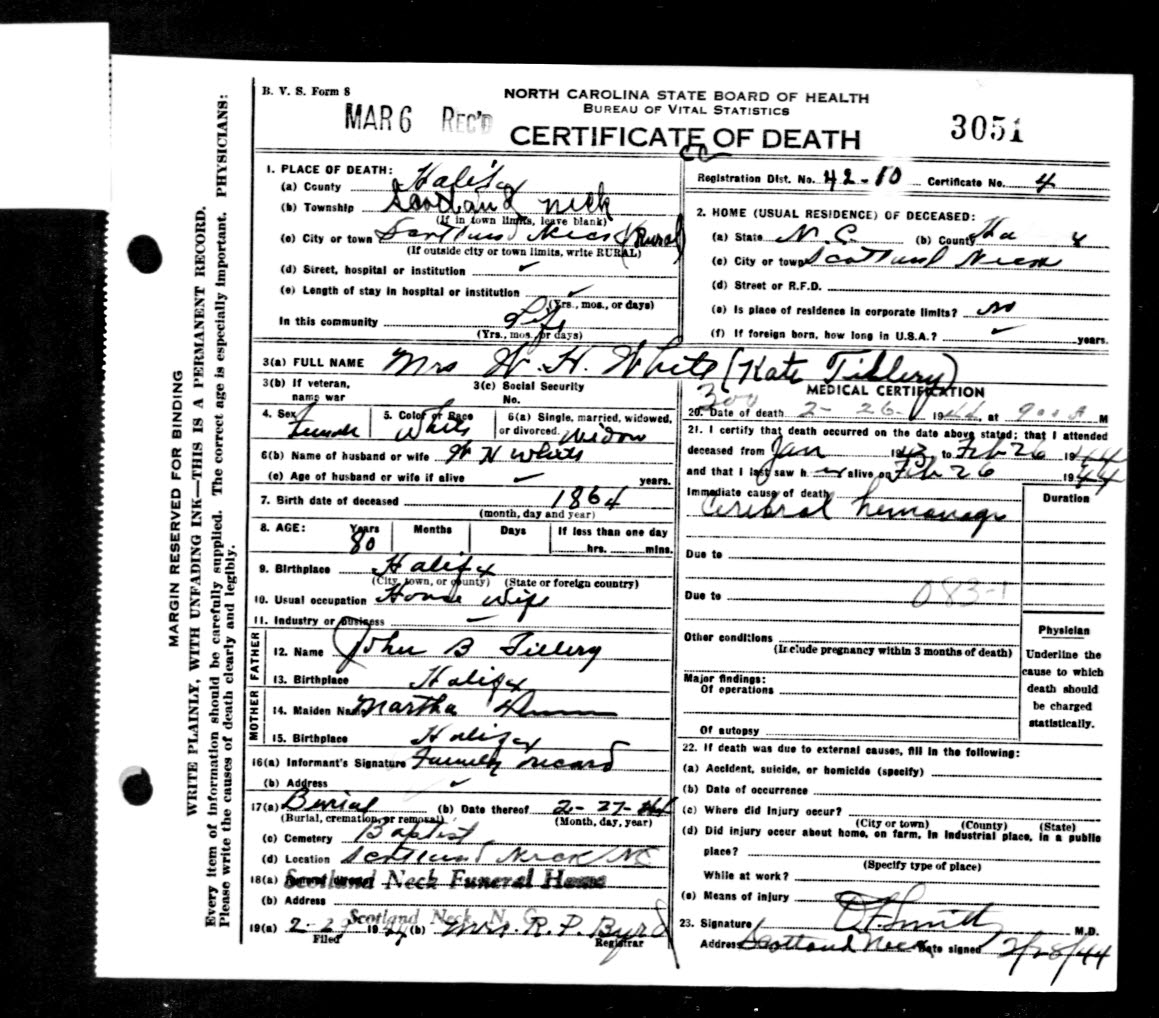 B. V. S. Form 8
MAR 6 REC'D
NORTH CAROLINA STATE BOARD OF HEALTH
BUREAU OF VITAL STATISTICS
CERTIFICATE OF DEATH
3051
MARGIN RESERVED FOR BINDING
WRITE PLAINLY, WITH UNFADING INK—THIS IS A PERMANENT RECORD.
Every item of information should be carefully supplied. The correct age is especially important. PHYSICIANS:
Please write the causes of death clearly and legibly.
1. PLACE OF DEATH:
(a) County Halifax
(b) Township Scotland Neck
(If in town limits, leave blank)
(c) City or town Scotland Neck (Rural)
(If outside city or town limits, write RURAL)
(d) Street, hospital or institution ✓
(e) Length of stay in hospital or institution ✓
(Yrs., mos., or days)
In this community Life
(Yrs., mos. or days)
Registration Dist. No. 42-10 Certificate No. 4
2. HOME (USUAL RESIDENCE) OF DECEASED:
(a) State N. C. (b) County Ha x
(c) City or town Scotland Neck
(d) Street or R.F.D.
(e) Is place of residence in corporate limits? No
(f) If foreign born, how long in U.S.A.? ✓ years.
3(a) FULL NAME Mrs W. H. White (Kate Tillery)
3(b) If veteran, name war
3(c) Social Security No.
4. Sex Female
5. Color or Race White
6(a) Single, married, widowed, or divorced. Widow
6(b) Name of husband or wife W H White
(c) Age of husband or wife if alive ✓ years.
7. Birth date of deceased 1864
(month, day and year)
8. AGE: Years 80 Months Days If less than one day
hrs. mins.
9. Birthplace Halifax
(City, town, or county) (State or foreign country)
10. Usual occupation House Wife
11. Industry or business ✓
FATHER
12. Name John B Tillery
13. Birthplace Halifax
MOTHER
14. Maiden Name Martha
15. Birthplace Halifax
16(a) Informant's Signature Family record
(b) Address ✓
17(a) Burial (b) Date thereof 2-27-44
(Burial, cremation, or removal) (Month, day, year)
(c) Cemetery Baptist
(d) Location Scotland Neck NC
18(a) Scotland Neck Funeral Home
(b) Address
Scotland Neck, N. C.
19(a) 2-29 1944 (b) Mrs. R. P. Byrd
Filed Registrar
MEDICAL CERTIFICATION
300
20. Date of death 2-26- 1944, at 900 A M
21. I certify that death occurred on the date above stated; that I attended
deceased from Jan 1943, to Feb 26 1944
and that I last saw her alive on Feb 26 1944
Immediate cause of death
Duration
Cerebral hemorrage
Due to
Due to
083-1
Other conditions
(Include pregnancy within 3 months of death)
Physician
Underline the cause to which death should be charged statistically.
Major findings:
Of operations
Of autopsy
22. If death was due to external causes, fill in the following:
(a) Accident, suicide, or homicide (specify)
(b) Date of occurrence
(c) Where did injury occur?
(City or town) (County) (State)
(d) Did injury occur about home, on farm, in industrial place, in a public
place?
(Specify type of place)
While at work?
(e) Means of injury
23. Signature O F Smith M.D.
Address Scotland Neck Date signed 2/28/44